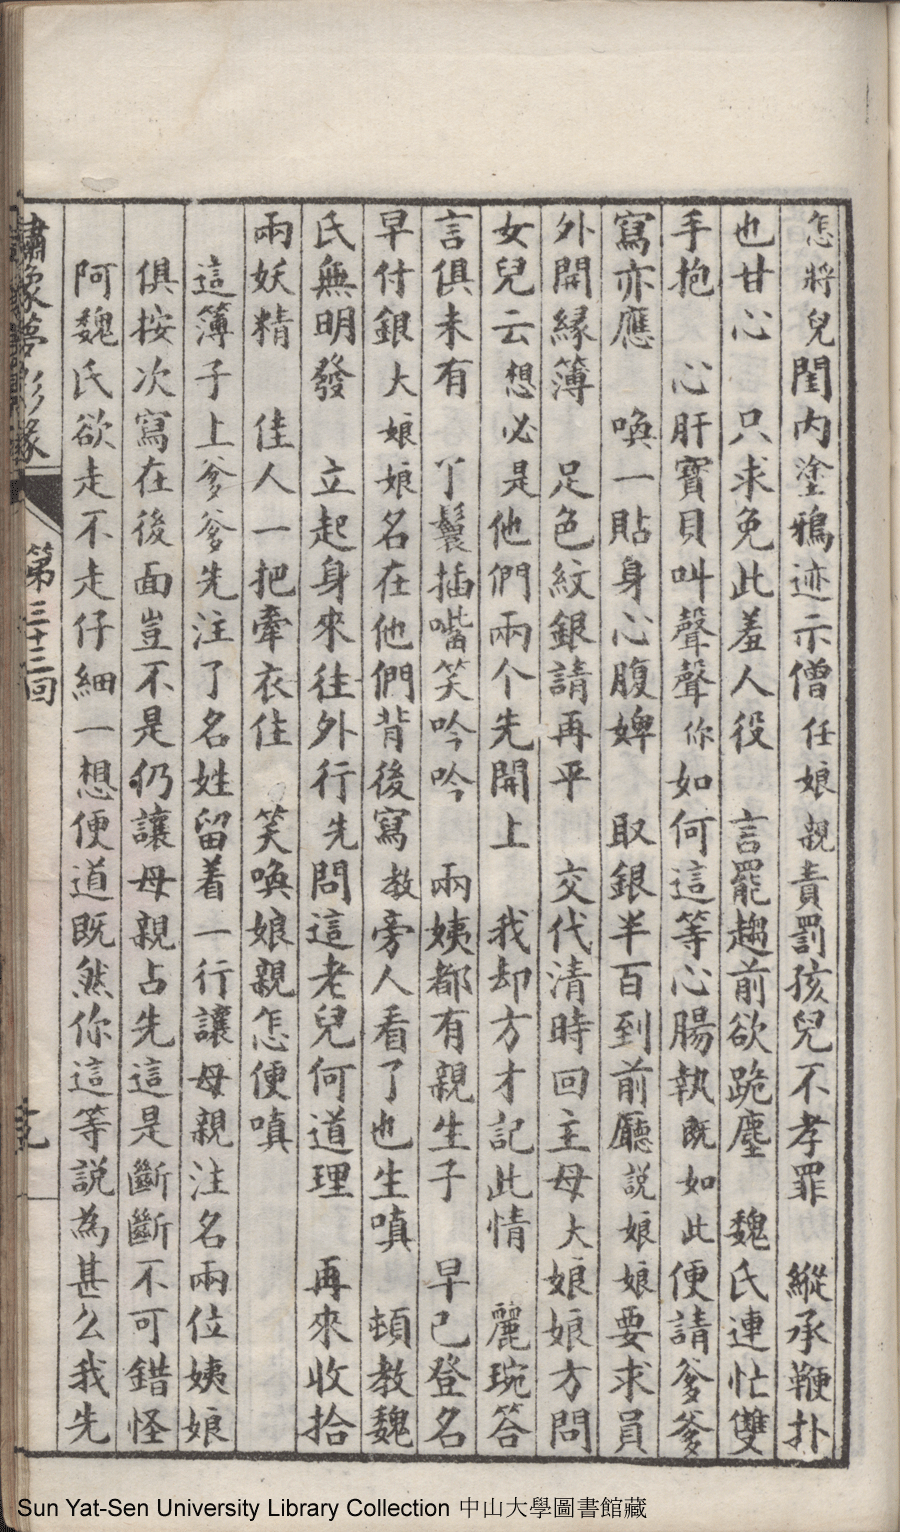 怎將兒閨内塗鴉迹示僧任娘親責罰孩兒不孝罪　縱承鞭扑
也甘心　只求免此羞人役　言罷趨前欲跪塵　魏氏連忙雙
手抱　心肝寶貝叫聲聲你如何這等心腸執既如此便請爹爹
寫亦應　喚一貼身心腹婢　取銀半百到前廳説娘娘要求員
外開緣簿　足色紋銀請再平　交代清時回主母大娘娘方問
女兒云想必是他們兩个先開上　我却方才記此情　麗琬答
言俱未有　丫鬟插嘴笑吟吟　兩姨都有親生子　早已登名
早付銀大娘娘名在他們背後寫教旁人看了也生嗔　頓教魏
氏無明發　立起身來往外行先問這老兒何道理　再來收拾
兩妖精　佳人一把牽衣住　笑喚娘親怎便嗔
這簿子上爹爹先注了名姓留着一行讓母親注名兩位姨娘
俱按次寫在後面豈不是仍讓母親占先這是斷斷不可錯怪
阿魏氏欲走不走仔細一想便道既然你這等説為甚么我先
繡像夢影緣　第三十三回
Sun Yat-Sen University Library Collection 中山大學圖書館藏